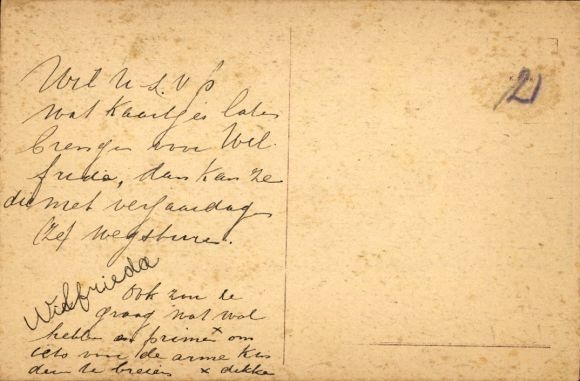 Wil U s.v.p
wat Kaartjes laten
brengen voor Wil-
frieda, dan kan ze
die met verjaardagen
zelf wegsturen.
Wilfrieda
Ook zou ze
graag wat wol
hebben en priemen x om
iets voor de arme kin
deren te breien x dikke
21